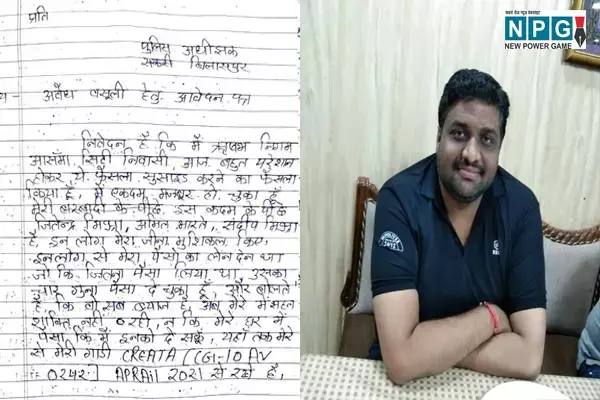 प्रति
पुलिस अधीक्षक
सकरी बिलासपुर
- अवैध वसूली हेतु आवेदन पत्र
निवेदन है कि मैं ऋषभ निगम
आसमाँ सिटी निवासी, आज बहुत परेशान
होकर ये फैसला सुसाइड करने का फैसला
किया है, मैं एकदम मजबूर हो चुका हूँ
मेरी बरबादी के पीछे इस कदम के पीछे
जितेन्द्र मिश्रा, अमित भारते, संदीप मिश्रा
है, इन लोग मेरा जीना मुश्किल किए,
इनलोग से मेरा पैसों का लेन देन था
जो कि जितना पैसा लिया था, उसका
चार गुना पैसा दे चुका हूँ, और बोलते
है कि वो सब ब्याज है, अब मेरे में सहन
शक्ति नहीं रही, न कि मेरे घर में
पैसा कि मैं इनको दे सकूँ, यहाँ तक मेरे
से मेरी गाड़ी CREATA (CG-10 AV
0242] APRAil 2021 से रखे है,
NPG
NEW POWER GAME